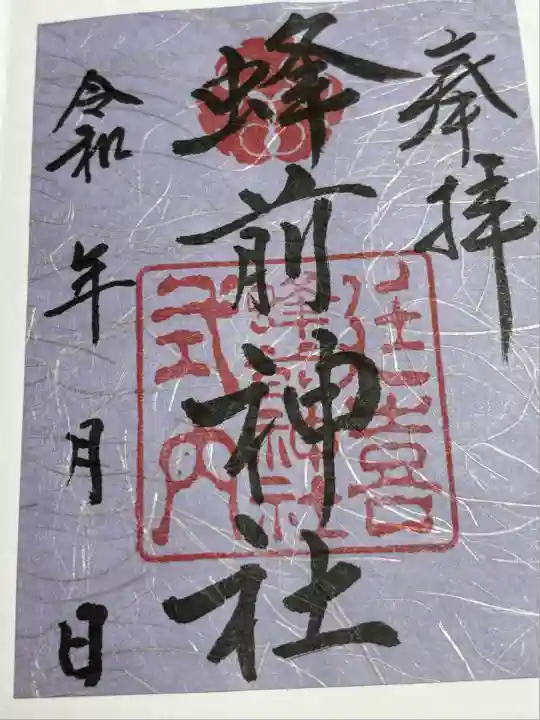 奉拝
蜂前神社
令和 年 月 日
式内
蜂前神社